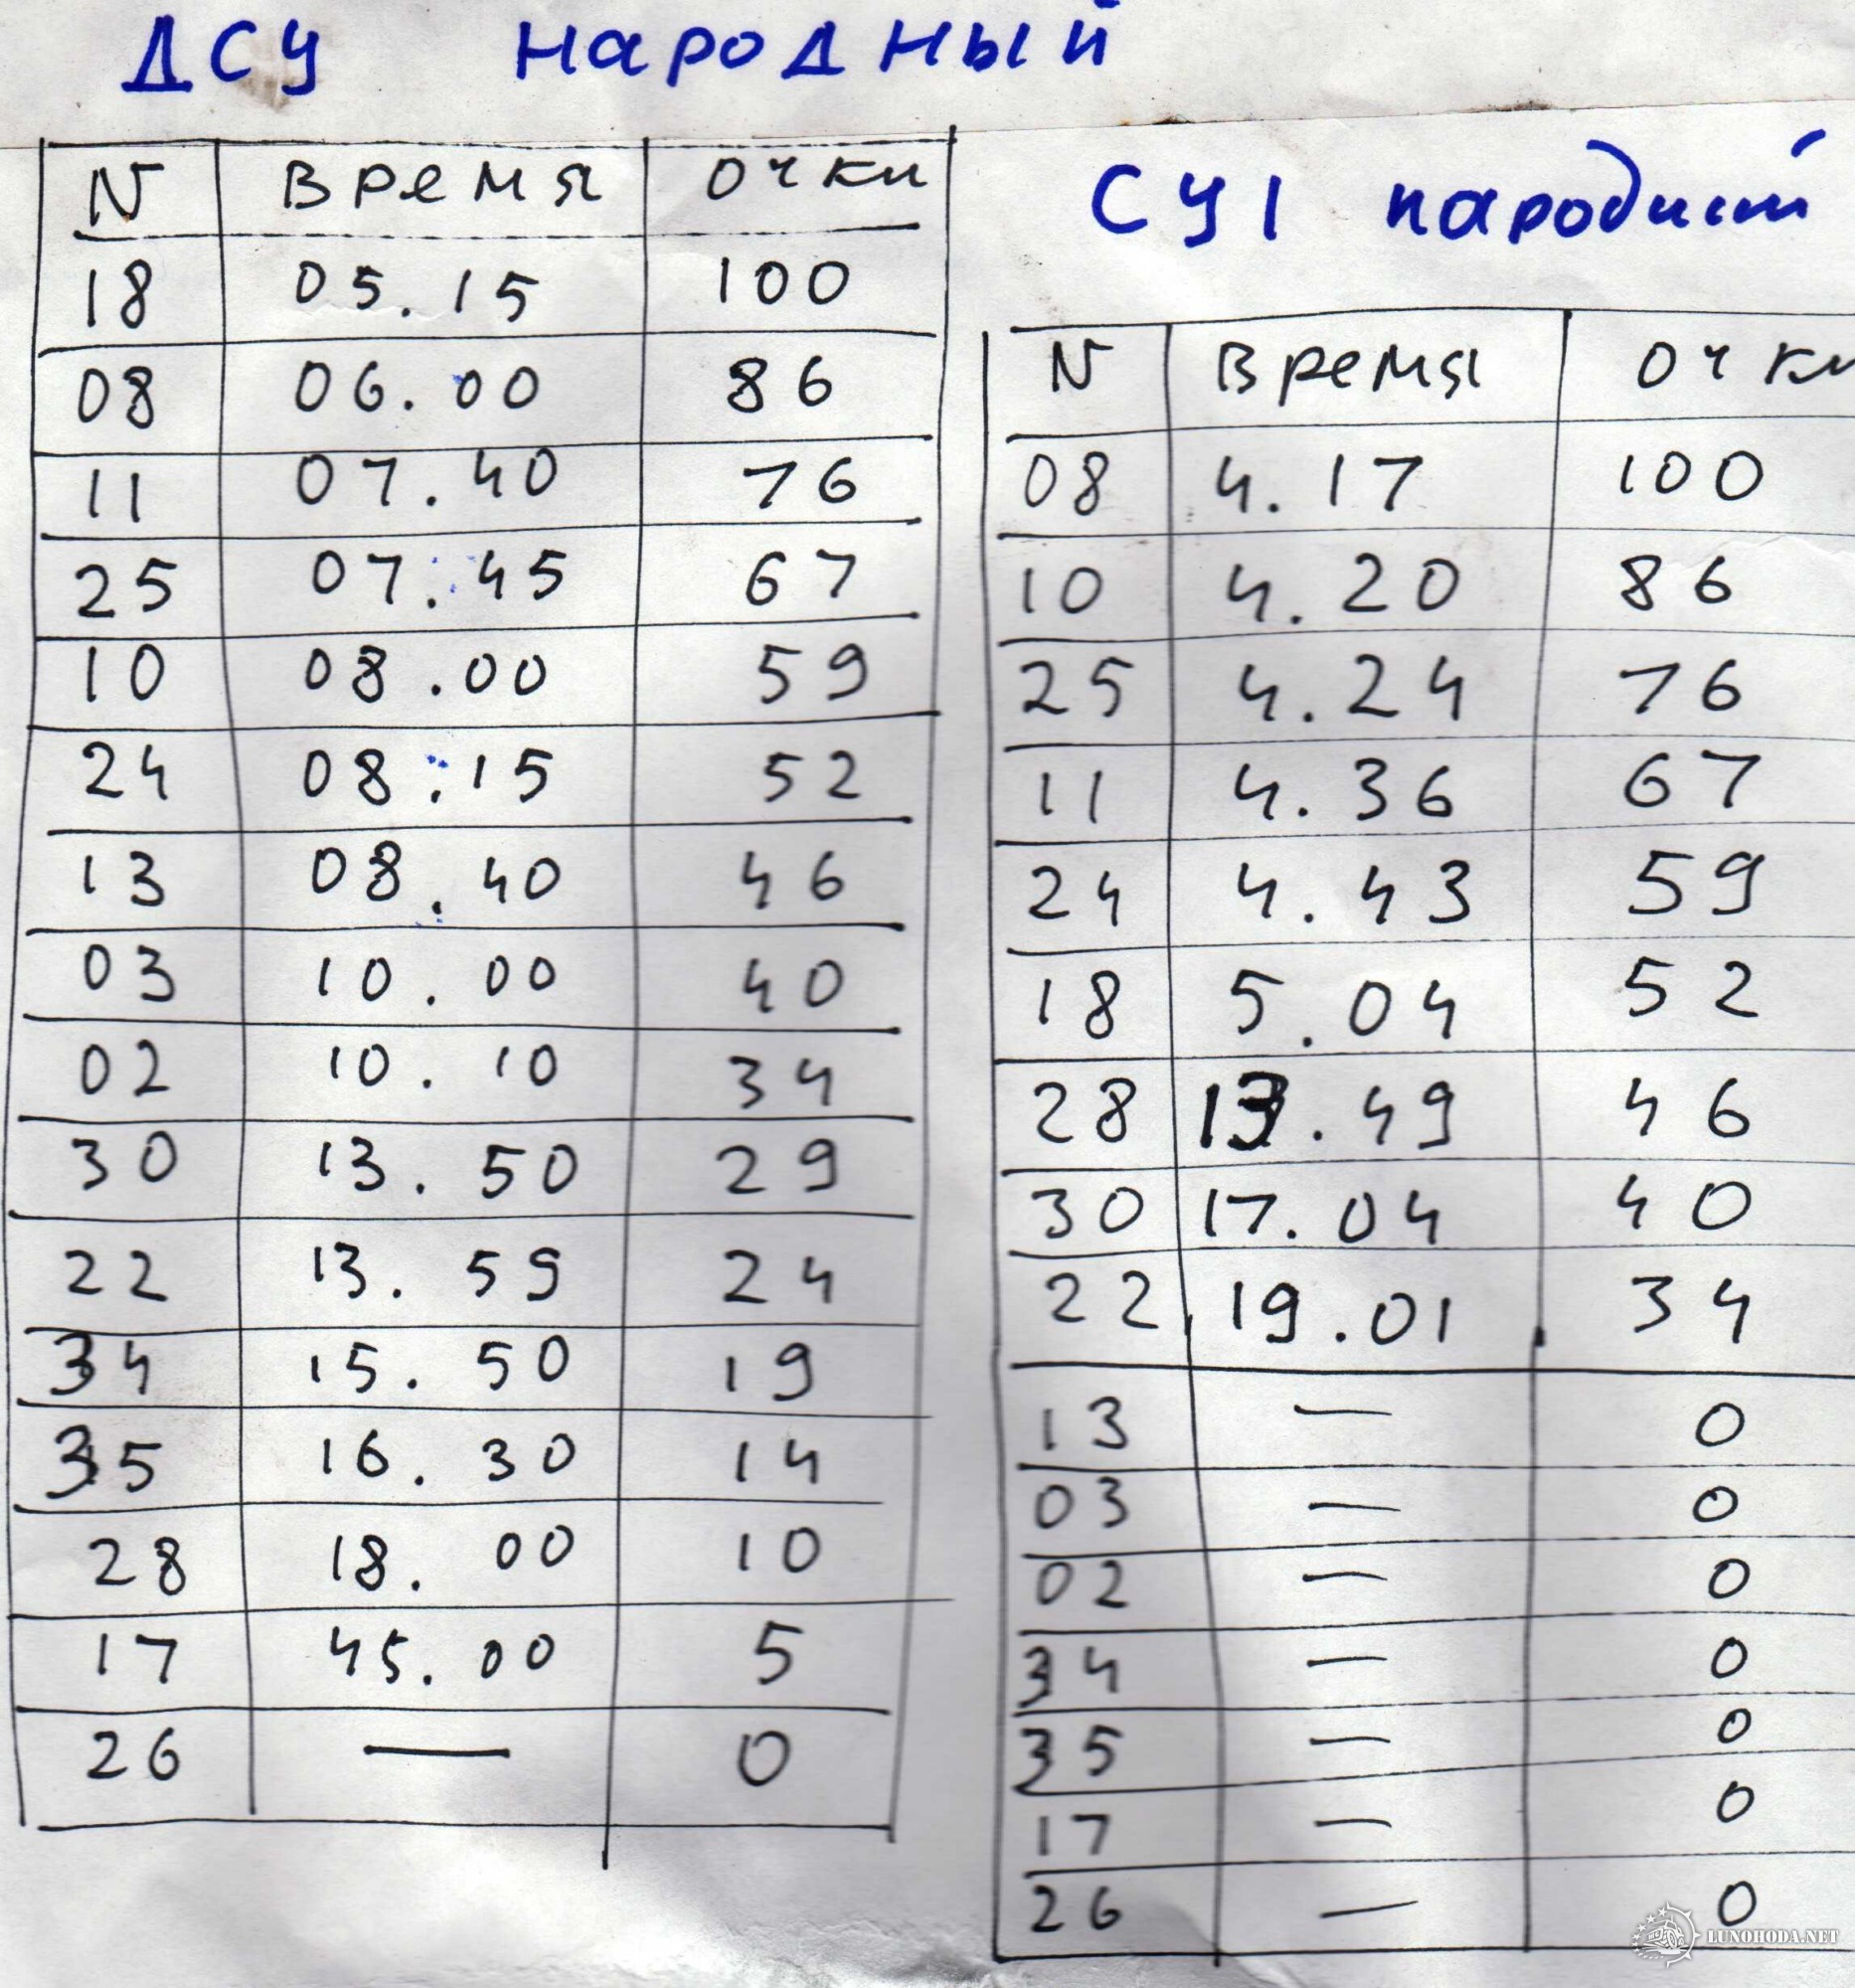 ДСУ народный
N время очки
18 05.15 100
08 06.00 86
11 07.40 76
25 07.45 67
10 08.00 59
24 08:15 52
13 08.40 46
03 10.00 40
02 10.10 34
30 13.50 29
22 13.59 24
34 15.50 19
35 16.30 14
28 18.00 10
17 45.00 5
26 — 0
СУ1 народный
N время очки
08 4.17 100
10 4.20 86
25 4.24 76
11 4.36 67
24 4.43 59
18 5.04 52
28 13.49 46
30 17.04 40
22 19.01 34
13 — 0
03 — 0
02 — 0
34 — 0
35 — 0
17 — 0
26 — 0
LUNOHODA.NET